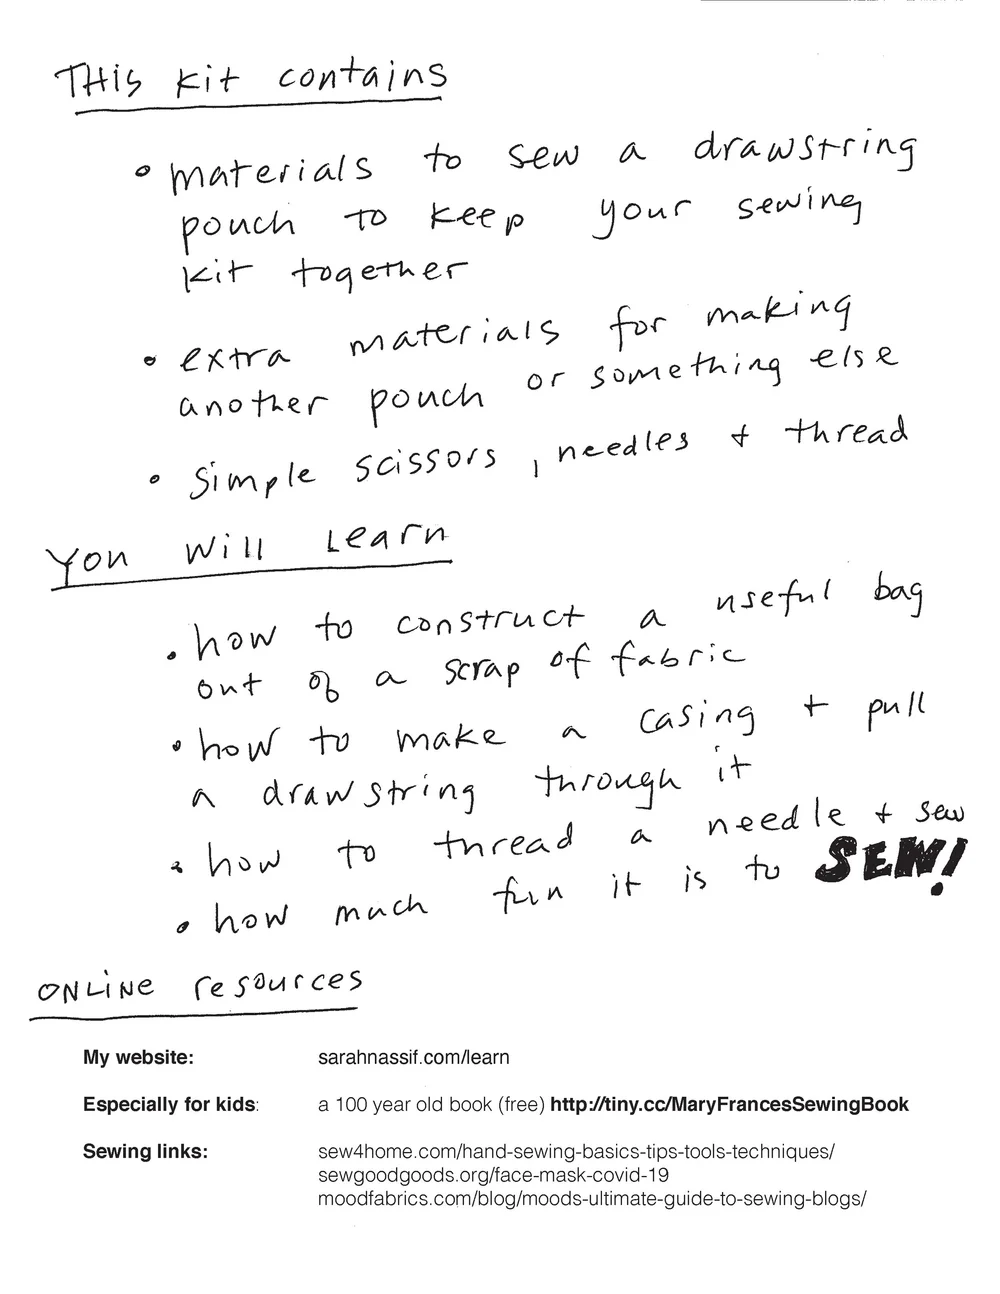 THis kit contains
• materials to sew a drawstring
pouch to keep your sewing
kit together
• extra materials for making
another pouch or something else
• simple scissors, needles + thread
You will Learn
• how to construct a useful bag
out of a scrap of fabric
• how to make a casing + pull
a drawstring through it
• how to thread a needle + sew
• how much fun it is to SEW!
ONLiNe resources
My website: sarahnassif.com/learn
Especially for kids: a 100 year old book (free) http://tiny.cc/MaryFrancesSewingBook
Sewing links: sew4home.com/hand-sewing-basics-tips-tools-techniques/
sewgoodgoods.org/face-mask-covid-19
moodfabrics.com/blog/moods-ultimate-guide-to-sewing-blogs/